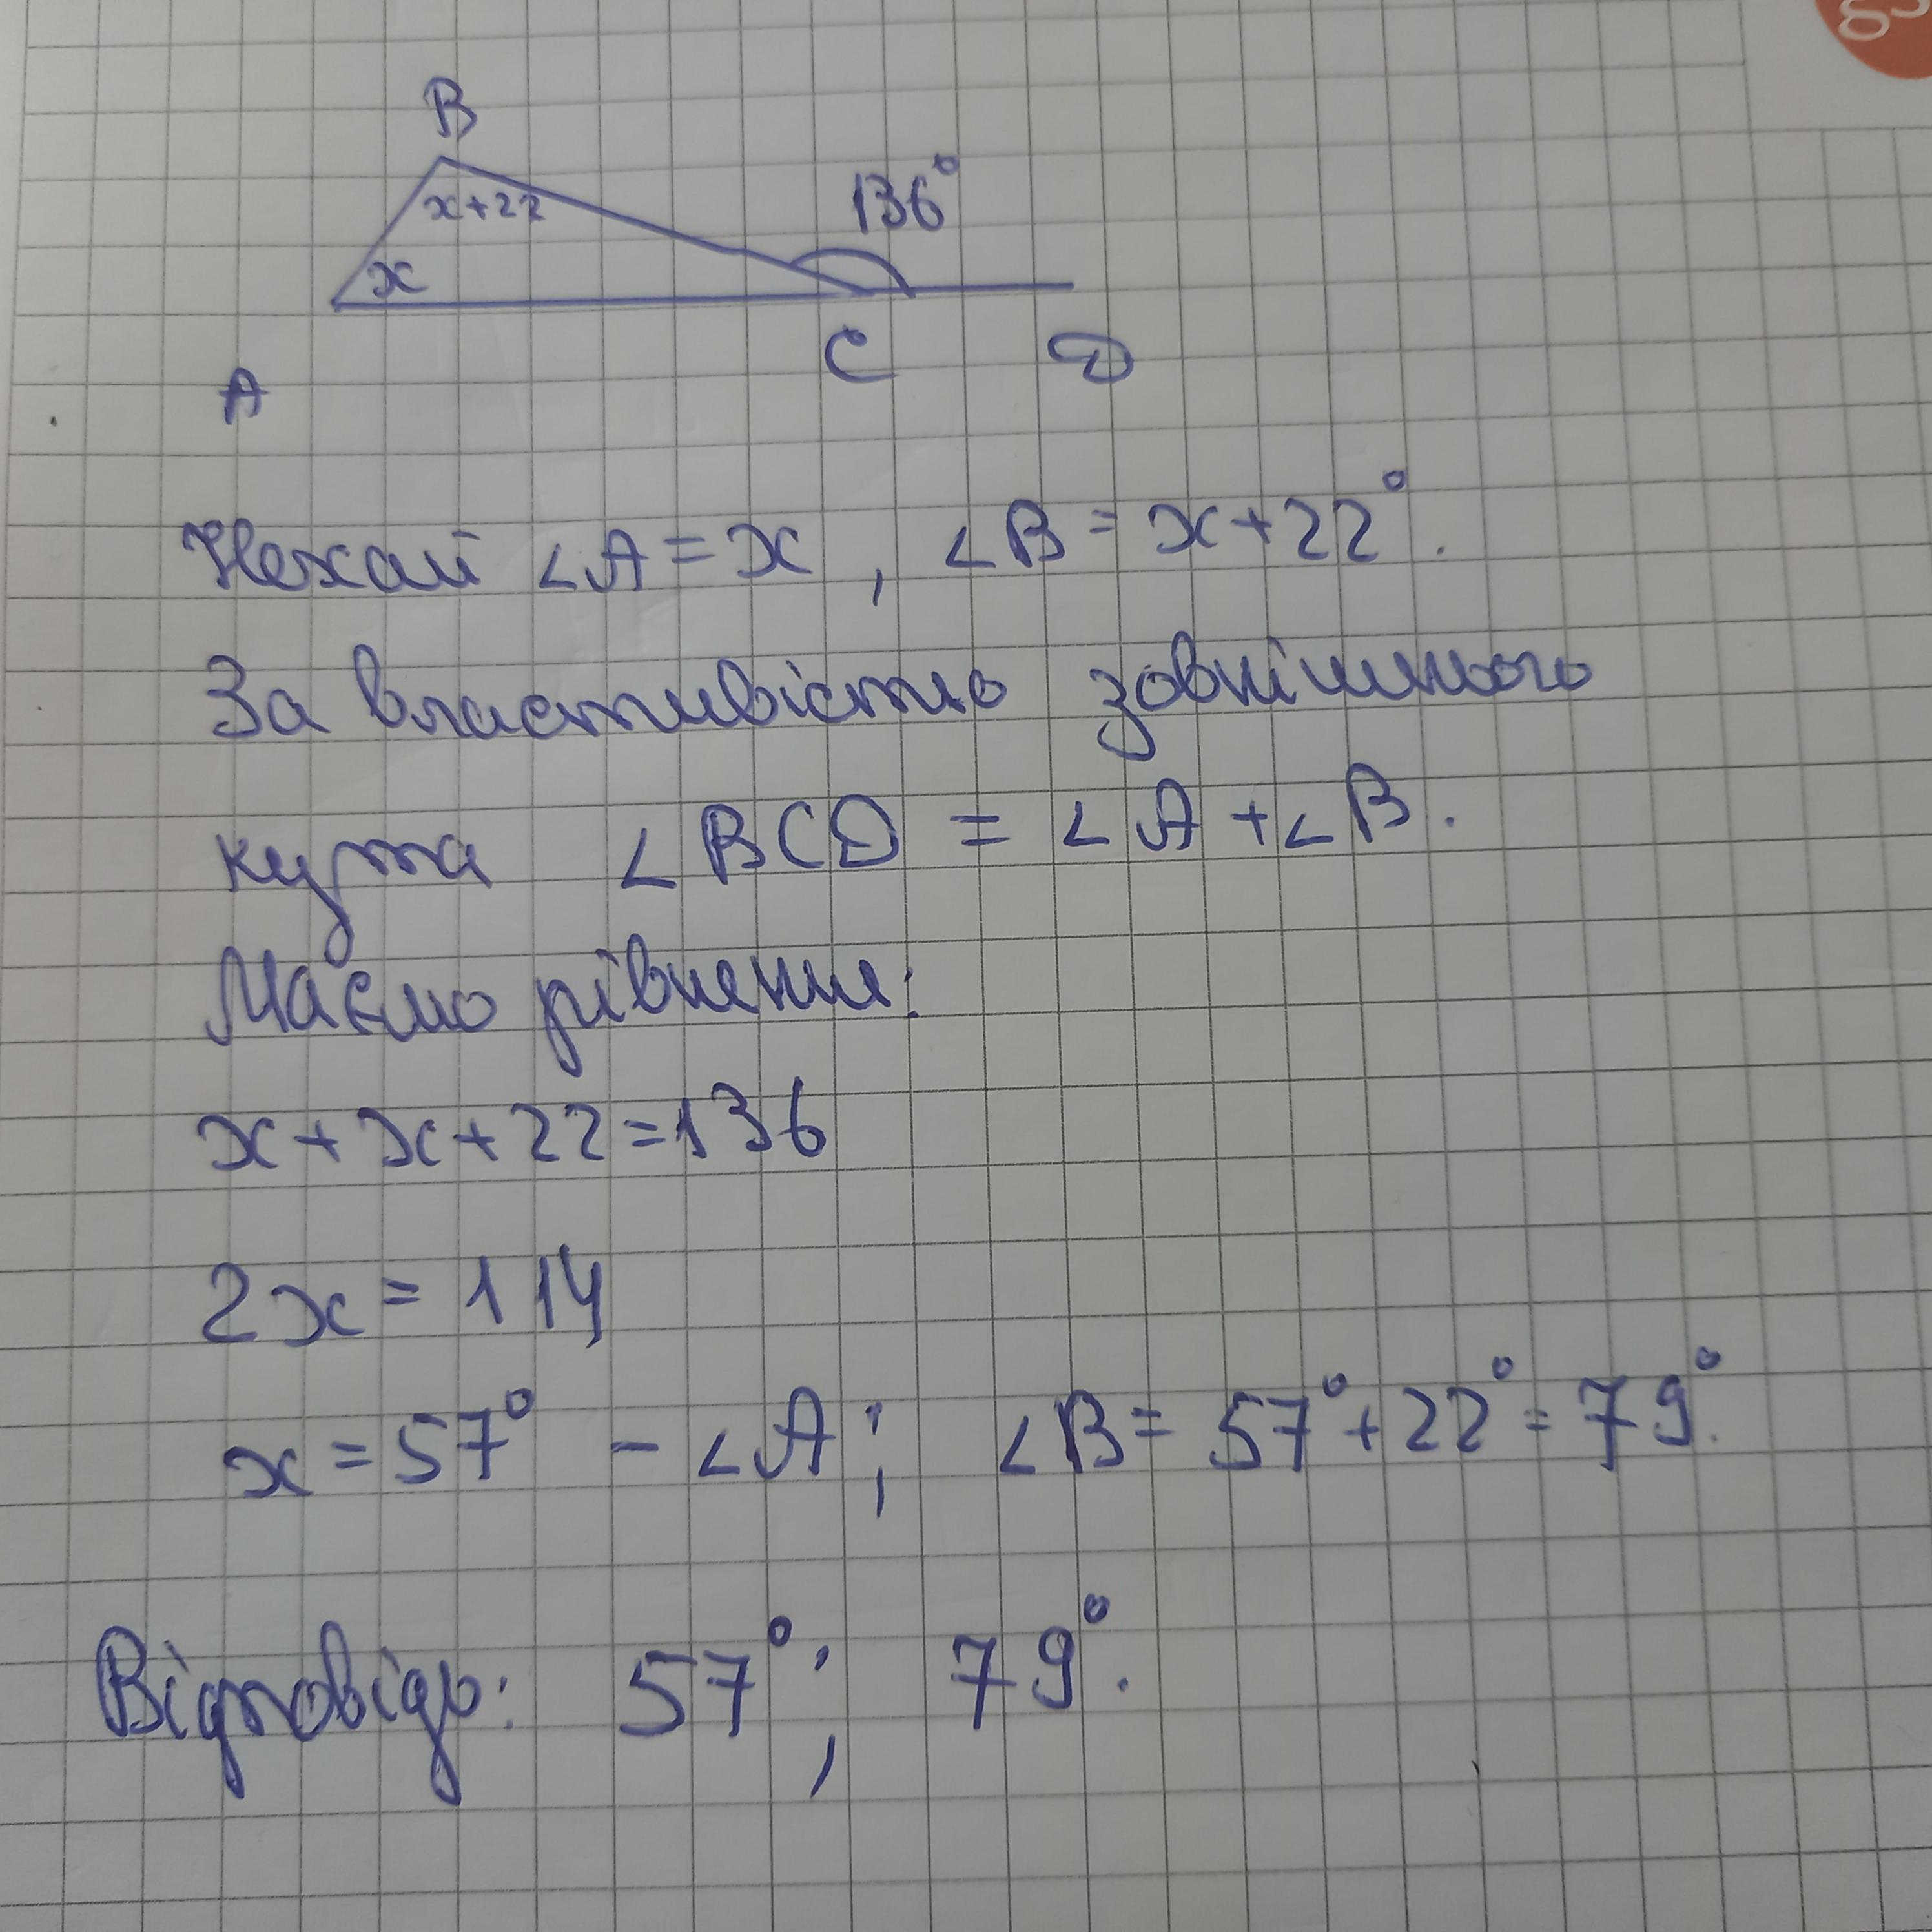 B
x+22
136°
x
C
D
A
Нехай ∠A = x, ∠B = x+22°.
За властивістю зовнішнього
кута ∠BCD = ∠A + ∠B.
Маємо рівняння:
x+x+22=136
2x = 114
x = 57° - ∠A; ∠B = 57°+22° = 79°.
Відповідь: 57°; 79°.